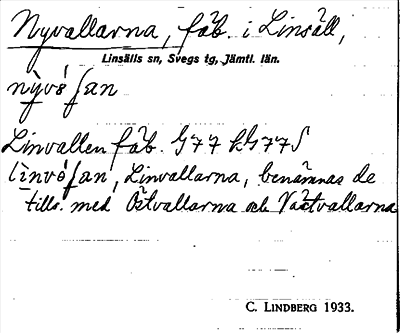 Nyvallarna, fäb. i Linsäll,
Linsälls sn, Svegs tg, Jämtl. län.
Linvallen fäb. G77
Linvallarna, benämnas de
tills. med Östvallarna och Västvallarna
C. LINDBERG 1933.